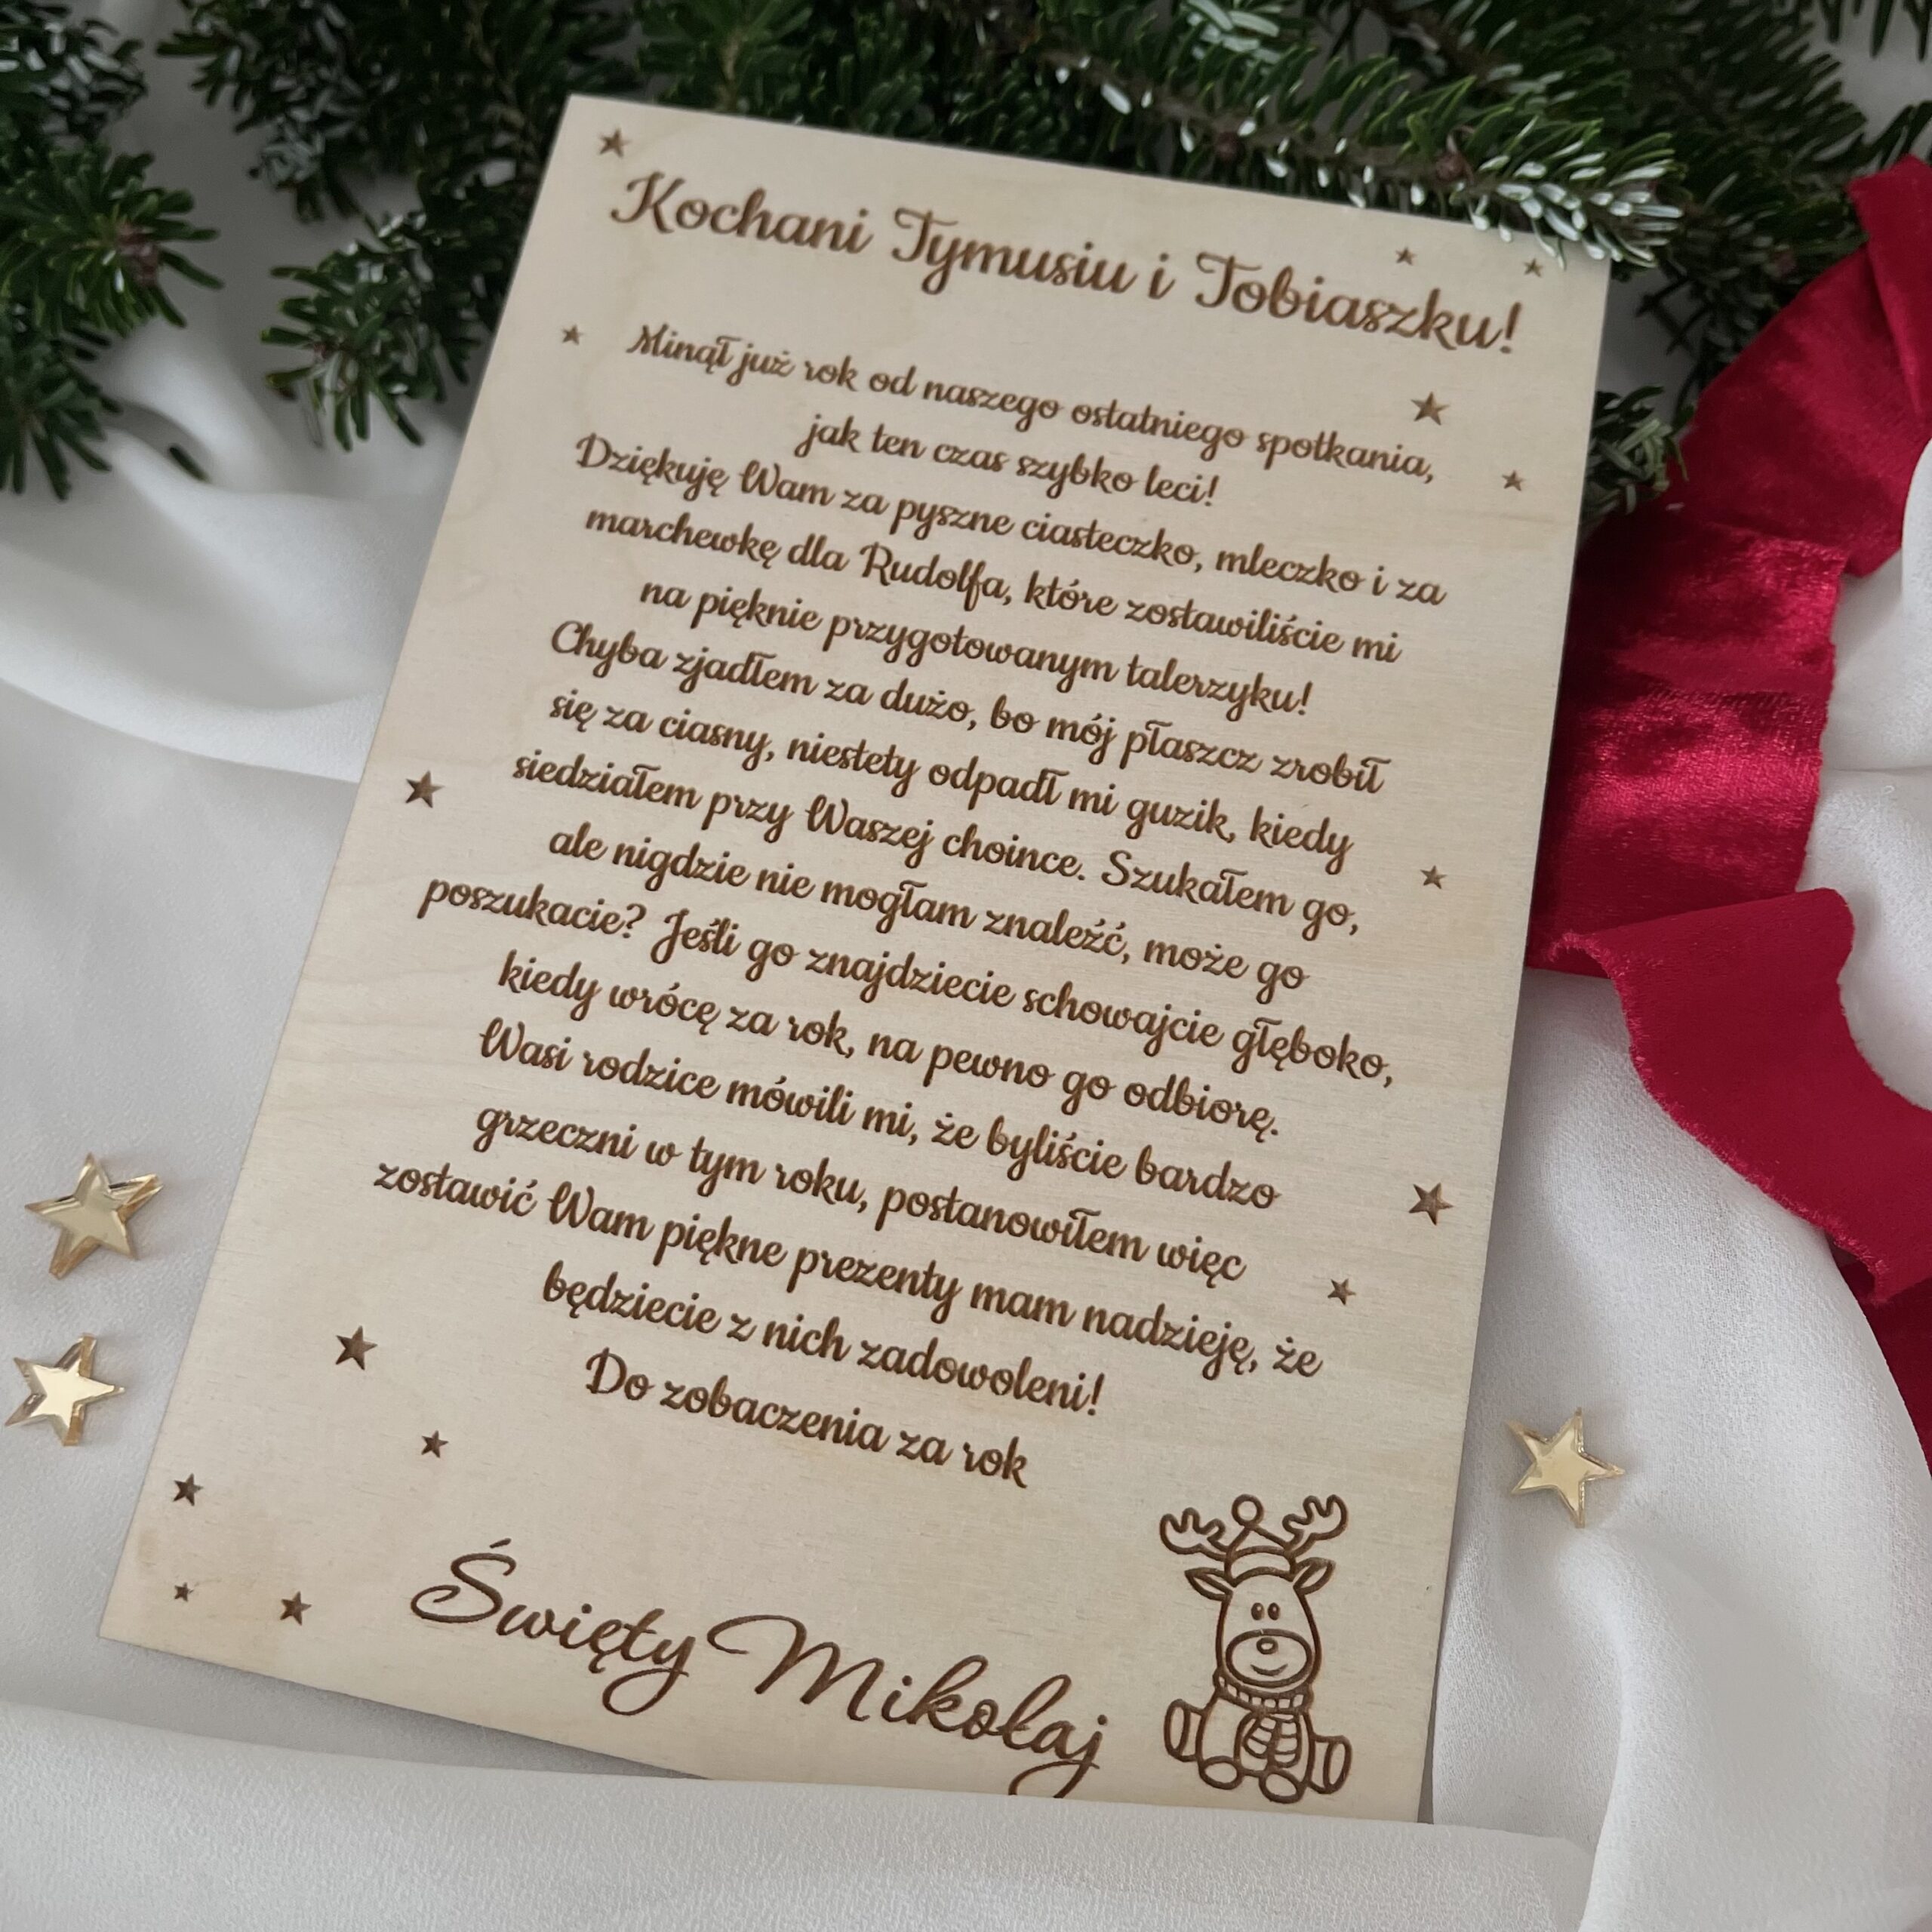 Kochani Tymusiu i Tobiaszku!
Minął już rok od naszego ostatniego spotkania,
jak ten czas szybko leci!
Dziękuję Wam za pyszne ciasteczko, mleczko i za
marchewkę dla Rudolfa, które zostawiliście mi
na pięknie przygotowanym talerzyku!
Chyba zjadłem za dużo, bo mój płaszcz zrobił
się za ciasny, niestety odpadł mi guzik, kiedy
siedziałem przy Waszej choince. Szukałem go,
ale nigdzie nie mogłam znaleźć, może go
poszukacie? Jeśli go znajdziecie schowajcie głęboko,
kiedy wrócę za rok, na pewno go odbiorę.
Wasi rodzice mówili mi, że byliście bardzo
grzeczni w tym roku, postanowiłem więc
zostawić Wam piękne prezenty mam nadzieję, że
będziecie z nich zadowoleni!
Do zobaczenia za rok
Święty Mikołaj